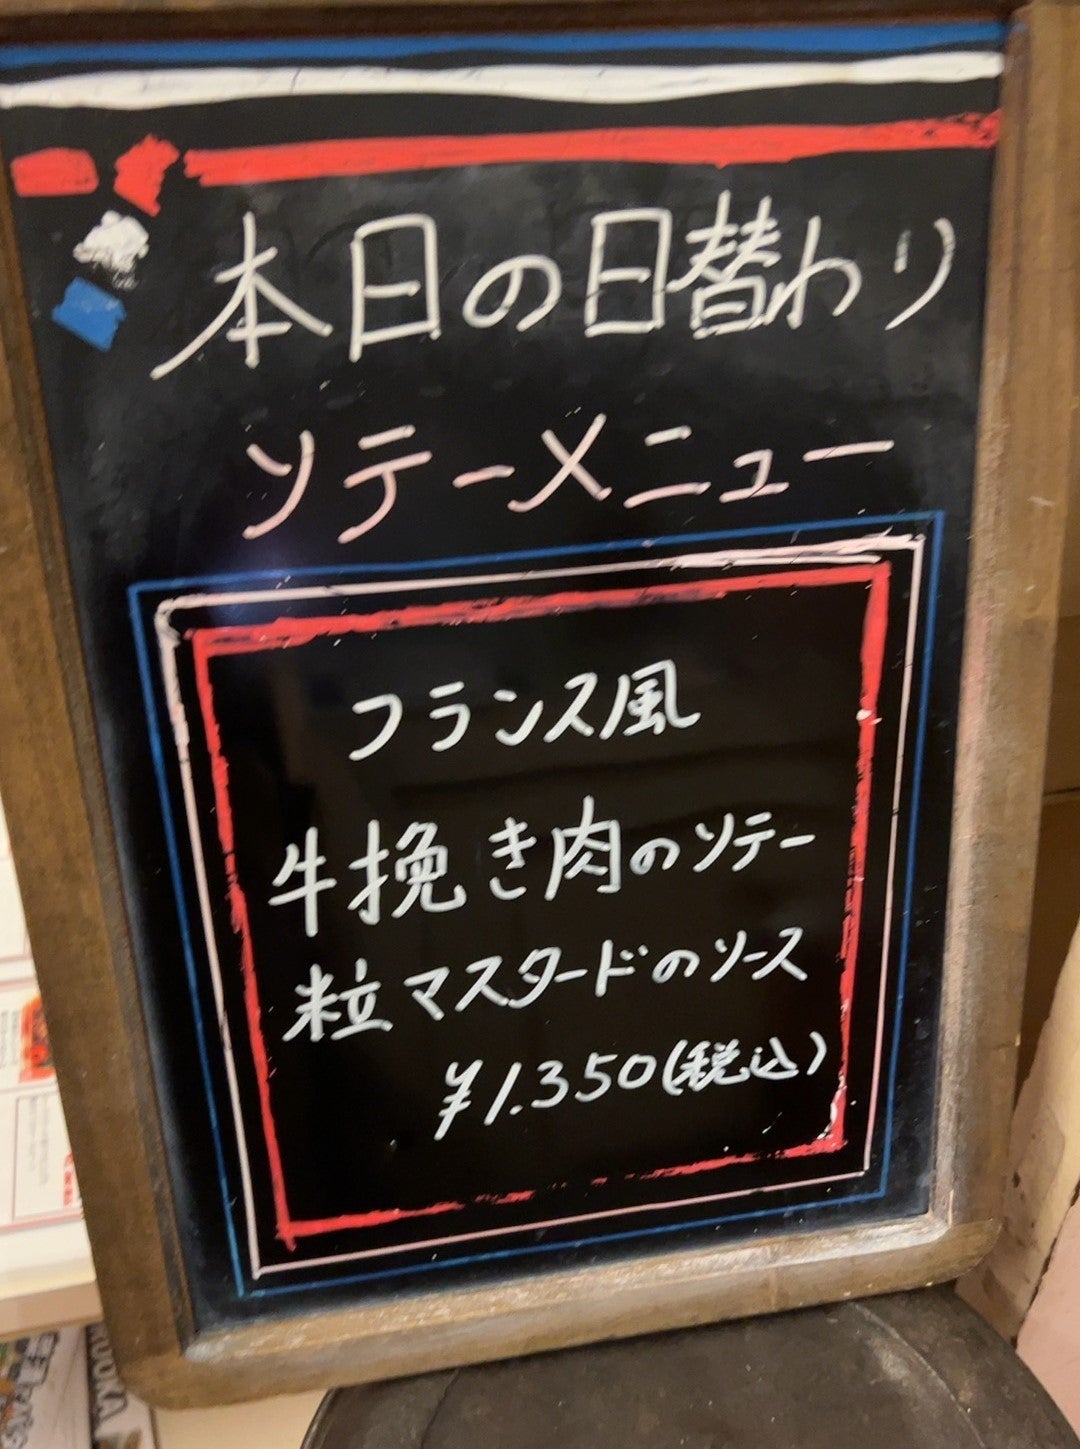 本日の日替わり
ソテーメニュー
フランス風
牛挽き肉のソテー
粒マスタードのソース
¥1.350(税込)